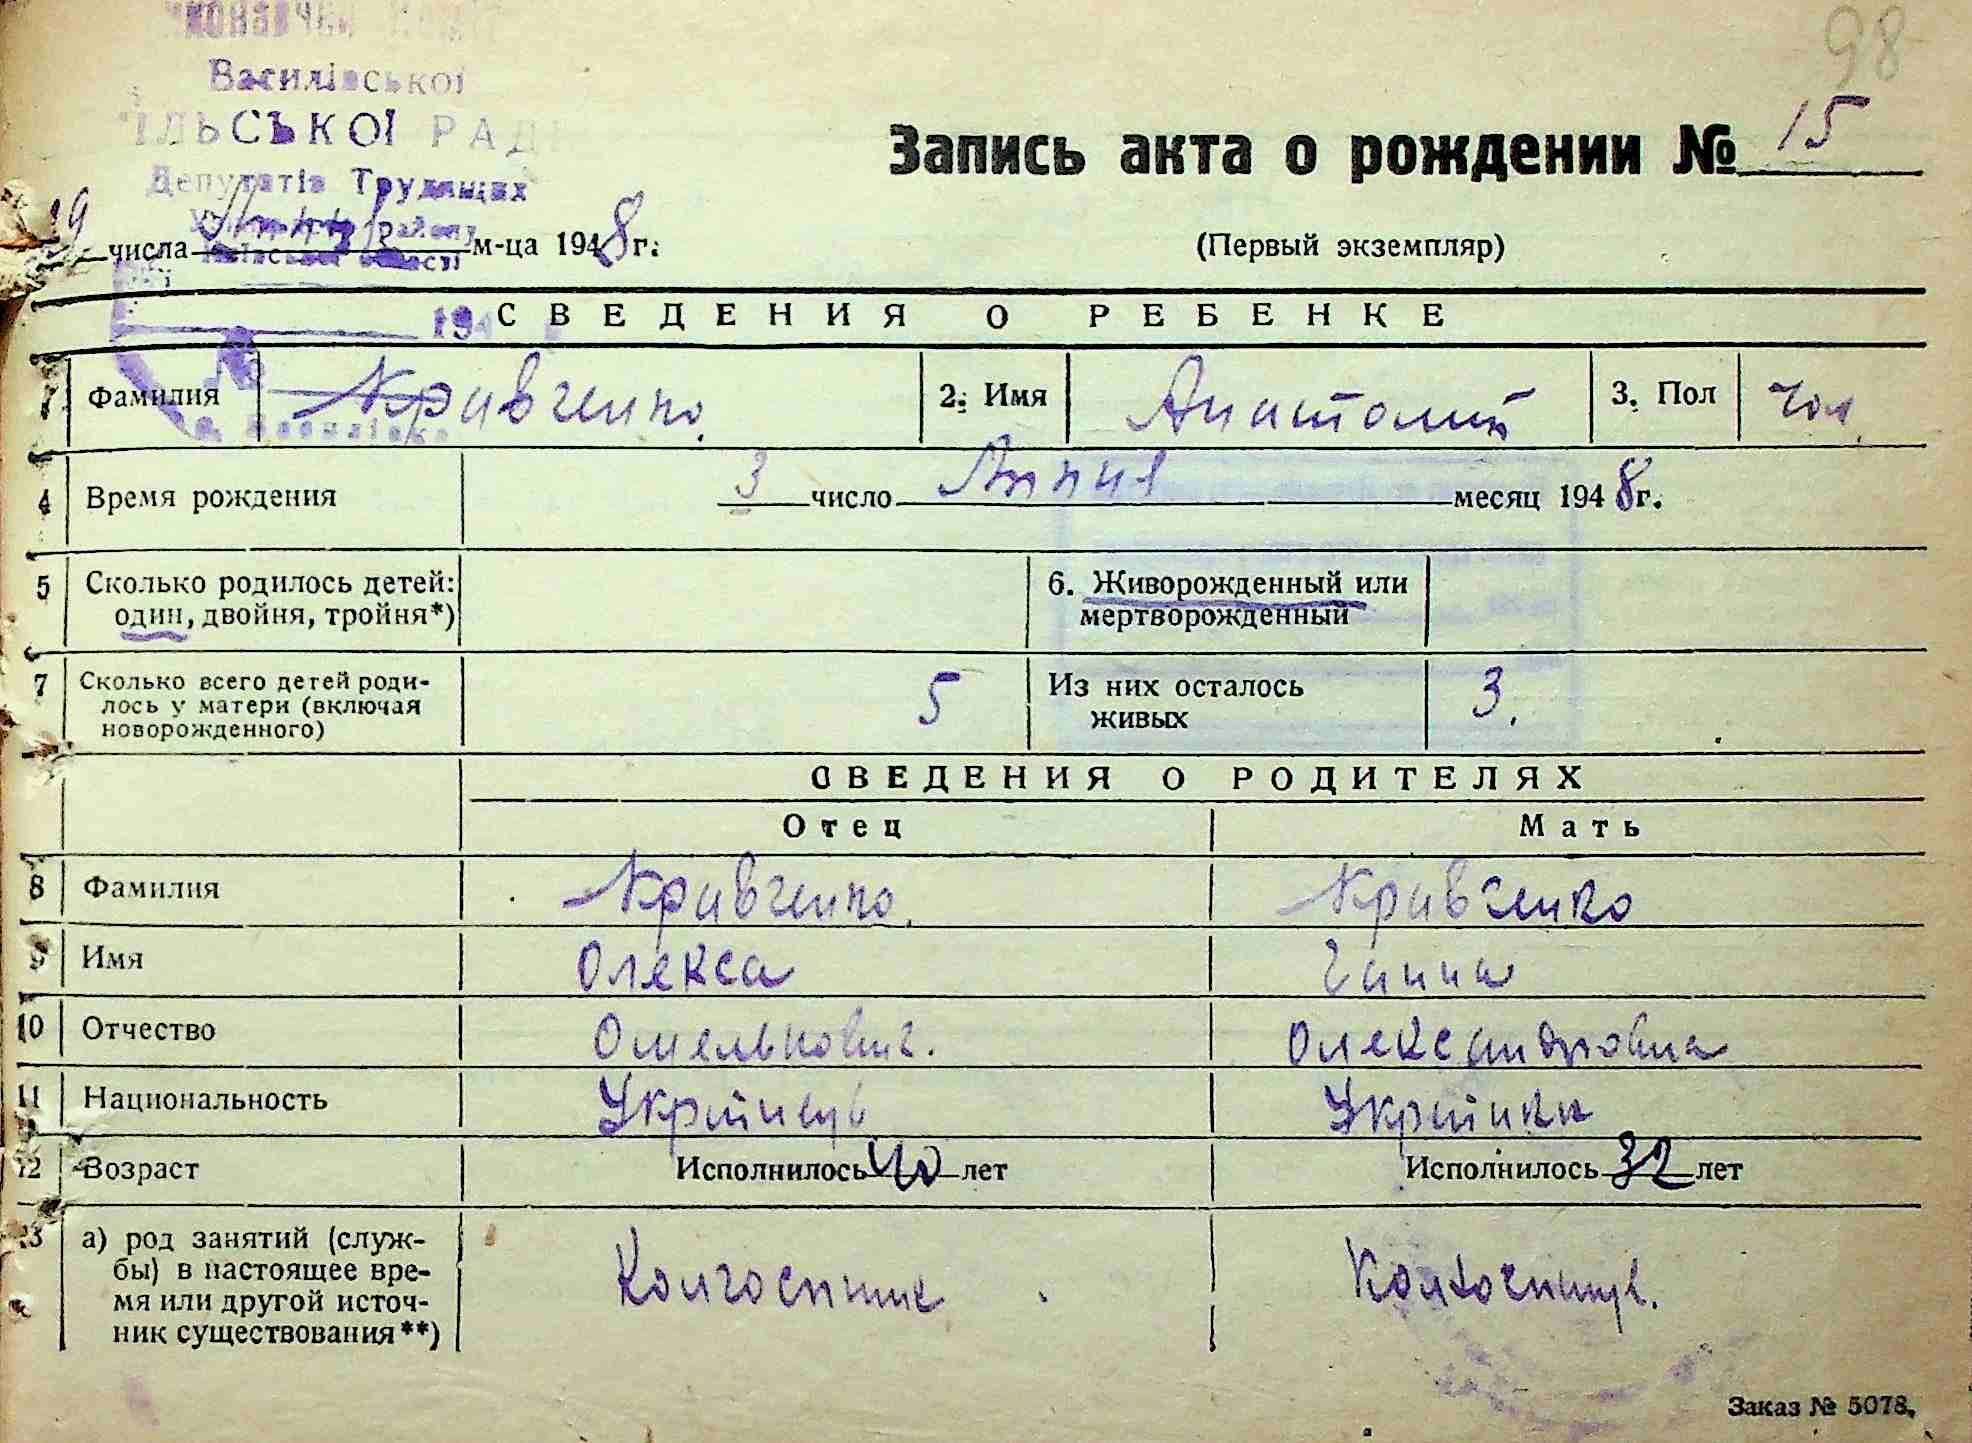 98
Василівської
ІЛЬСЬКОЇ РАД
Депутатів Трудящих
Запись акта о рождении № 15
числа м-ца 1948 г.
(Первый экземпляр)
194
СВЕДЕНИЯ О РЕБЕНКЕ
1. Фамилия Кравченко 2. Имя Анатолій 3. Пол чол.
4 Время рождения 3 число месяц 1948 г.
5 Сколько родилось детей: один, двойня, тройня*)
6. Живорожденный или мертворожденный
7 Сколько всего детей родилось у матери (включая новорожденного) 5
Из них осталось живых 3.
СВЕДЕНИЯ О РОДИТЕЛЯХ
Отец Мать
8 Фамилия Кравченко. Кравченко
9 Имя Олекса Ганна
10 Отчество Омелькович. Олександровна
11 Национальность Українец Українка
12 Возраст Исполнилось 40 лет Исполнилось 32 лет
13 а) род занятий (службы) в настоящее время или другой источник существования**) Колгоспник
Заказ № 5078.